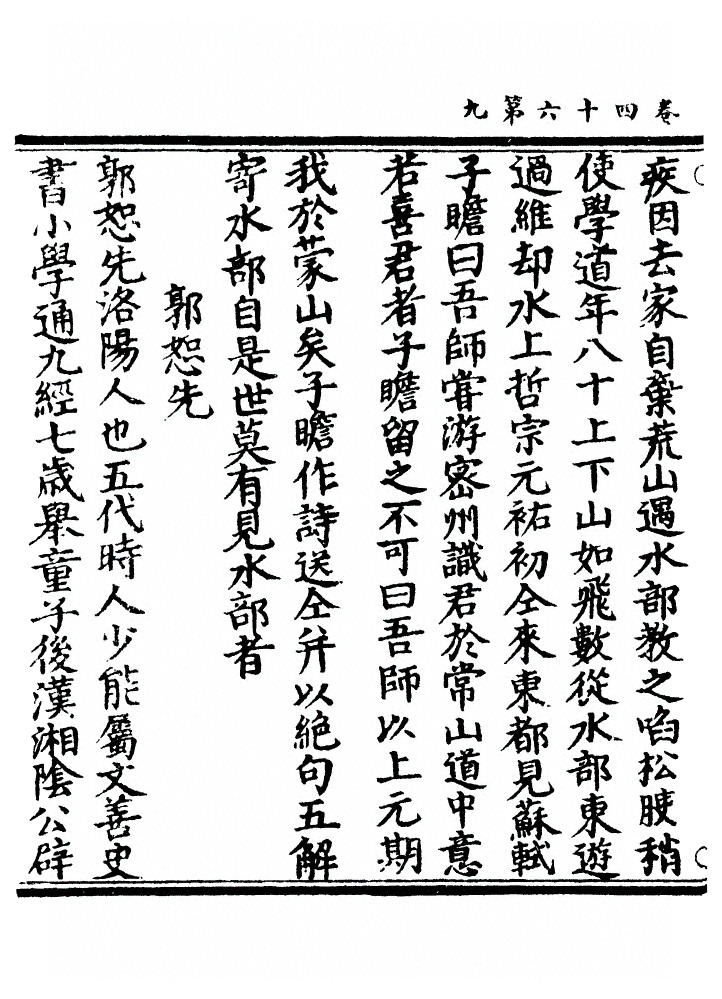 卷四十六第九
疾因去家自棄荒山遇水部教之啗松腴稍
使學道年八十上下山如飛數從水部東遊
過維却水上哲宗元祐初仝來東都見蘇軾
子瞻曰吾師嘗游密州識君於常山道中意
若喜君者子瞻留之不可曰吾師以上元期
我於蒙山矣子瞻作詩送仝并以絕句五解
寄水部自是世莫有見水部者
郭恕先
郭恕先洛陽人也五代時人少能屬文善史
書小學通九經七歲舉童子後漢湘陰公辟